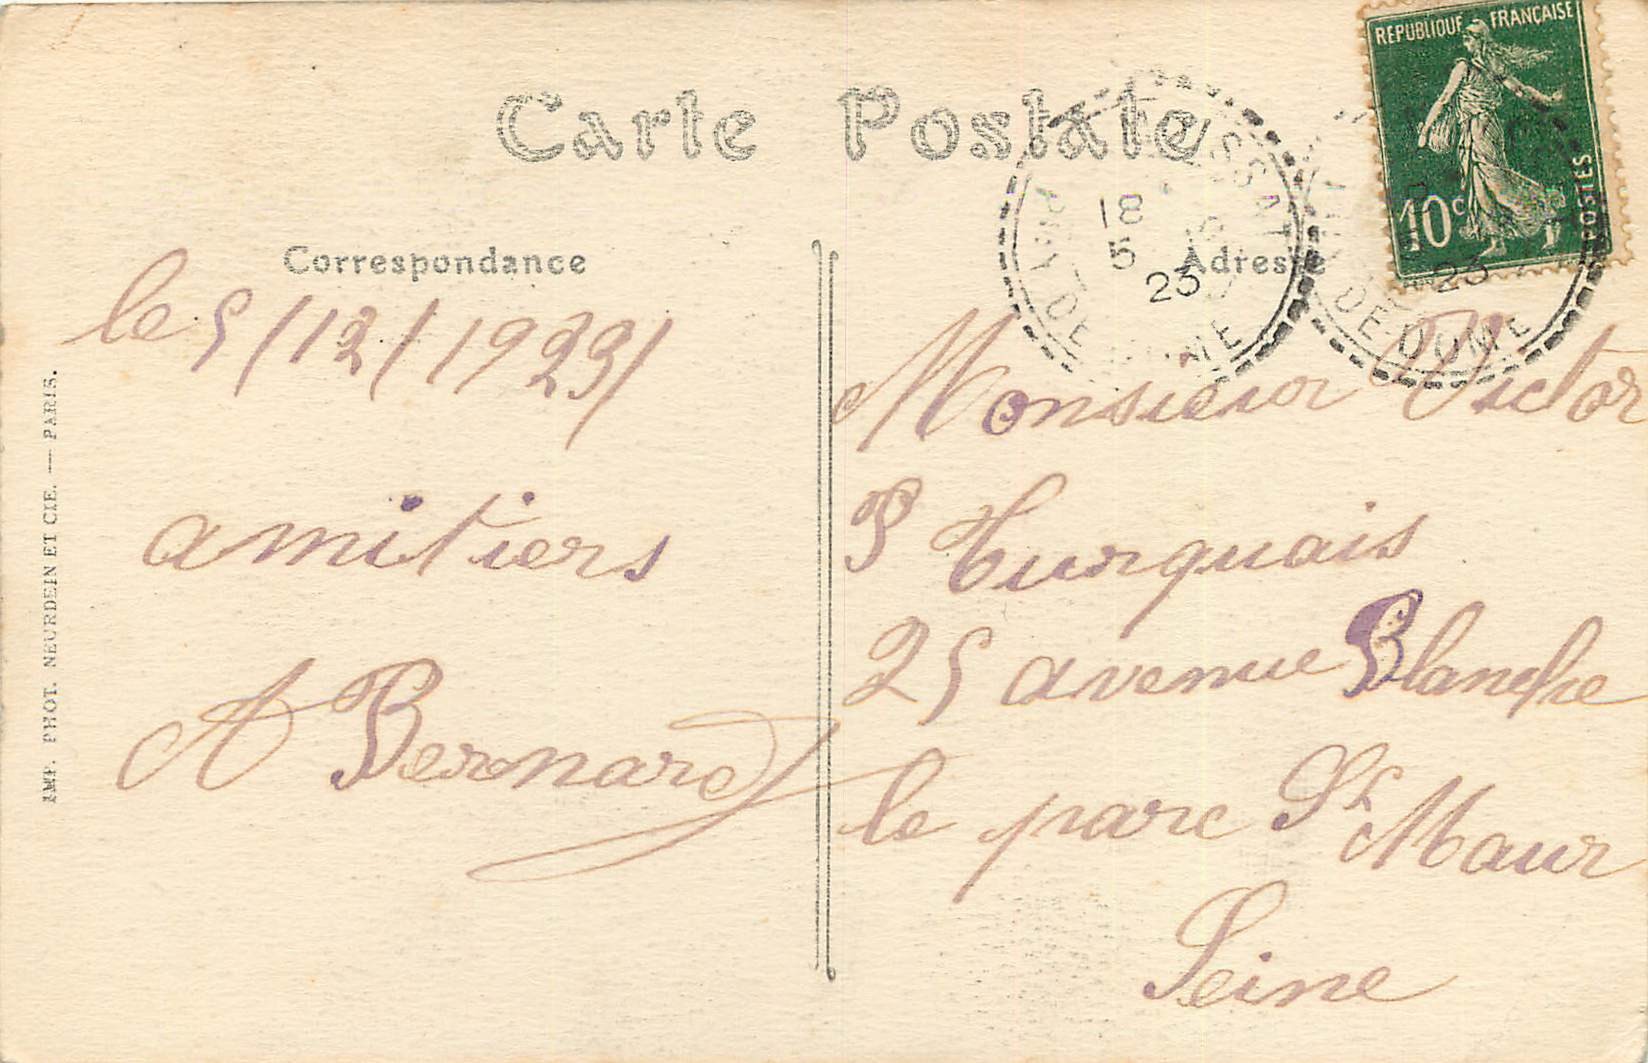 Carte Postale
RÉPUBLIQUE FRANÇAISE
10c
POSTES
18
5
23
PUY DE DOME
DE-DOME
23
Correspondance
Adresse
le 5/12/1923/
amitiers
A Bernard
Monsieur Victor
Turquais
25 avenue Blanche
le parc St Maur
Seine
IMP. PHOT. NEURDEIN ET CIE. — PARIS.